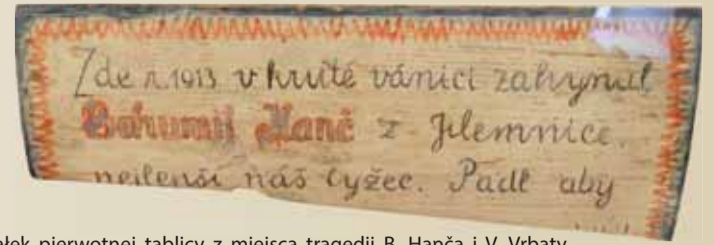 Zde r. 1913 v kruté vánici zahynul
Bohumil Hanč z Jilemnice.
nejlepší náš lyžec. Padl aby
pierwotnej tablicy z miejsca tragedii B. Hanča i V. Vrbaty